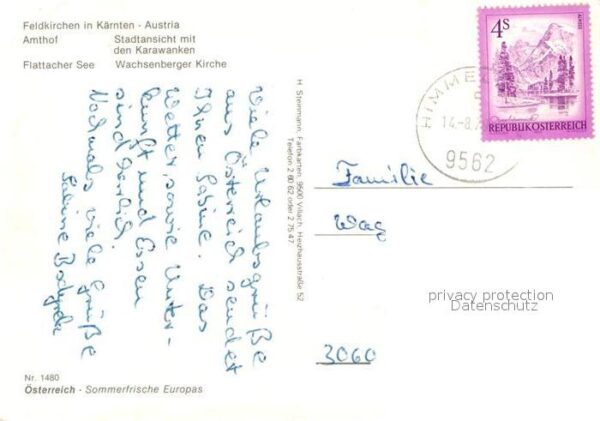 Feldkirchen in Kärnten - Austria
Amthof Stadtansicht mit
den Karawanken
Flattacher See Wachsenberger Kirche
Viele Urlaubsgrüße
aus Österreich sendet
Ihnen Sabine. Das
Wetter, sowie Unter-
kunft und Essen
sind herrlich.
Nochmals viele Grüße
Sabine
H. Steinmann, Farbkarten, 9500 Villach, Heizhausstraße 52
Telefon 2 80 62 oder 2 75 47
4S
ALMSEE
REPUBLIK ÖSTERREICH
14.-8.
9562
Familie
Wag
privacy protection
Datenschutz
3060
Nr. 1480
Österreich - Sommerfrische Europas